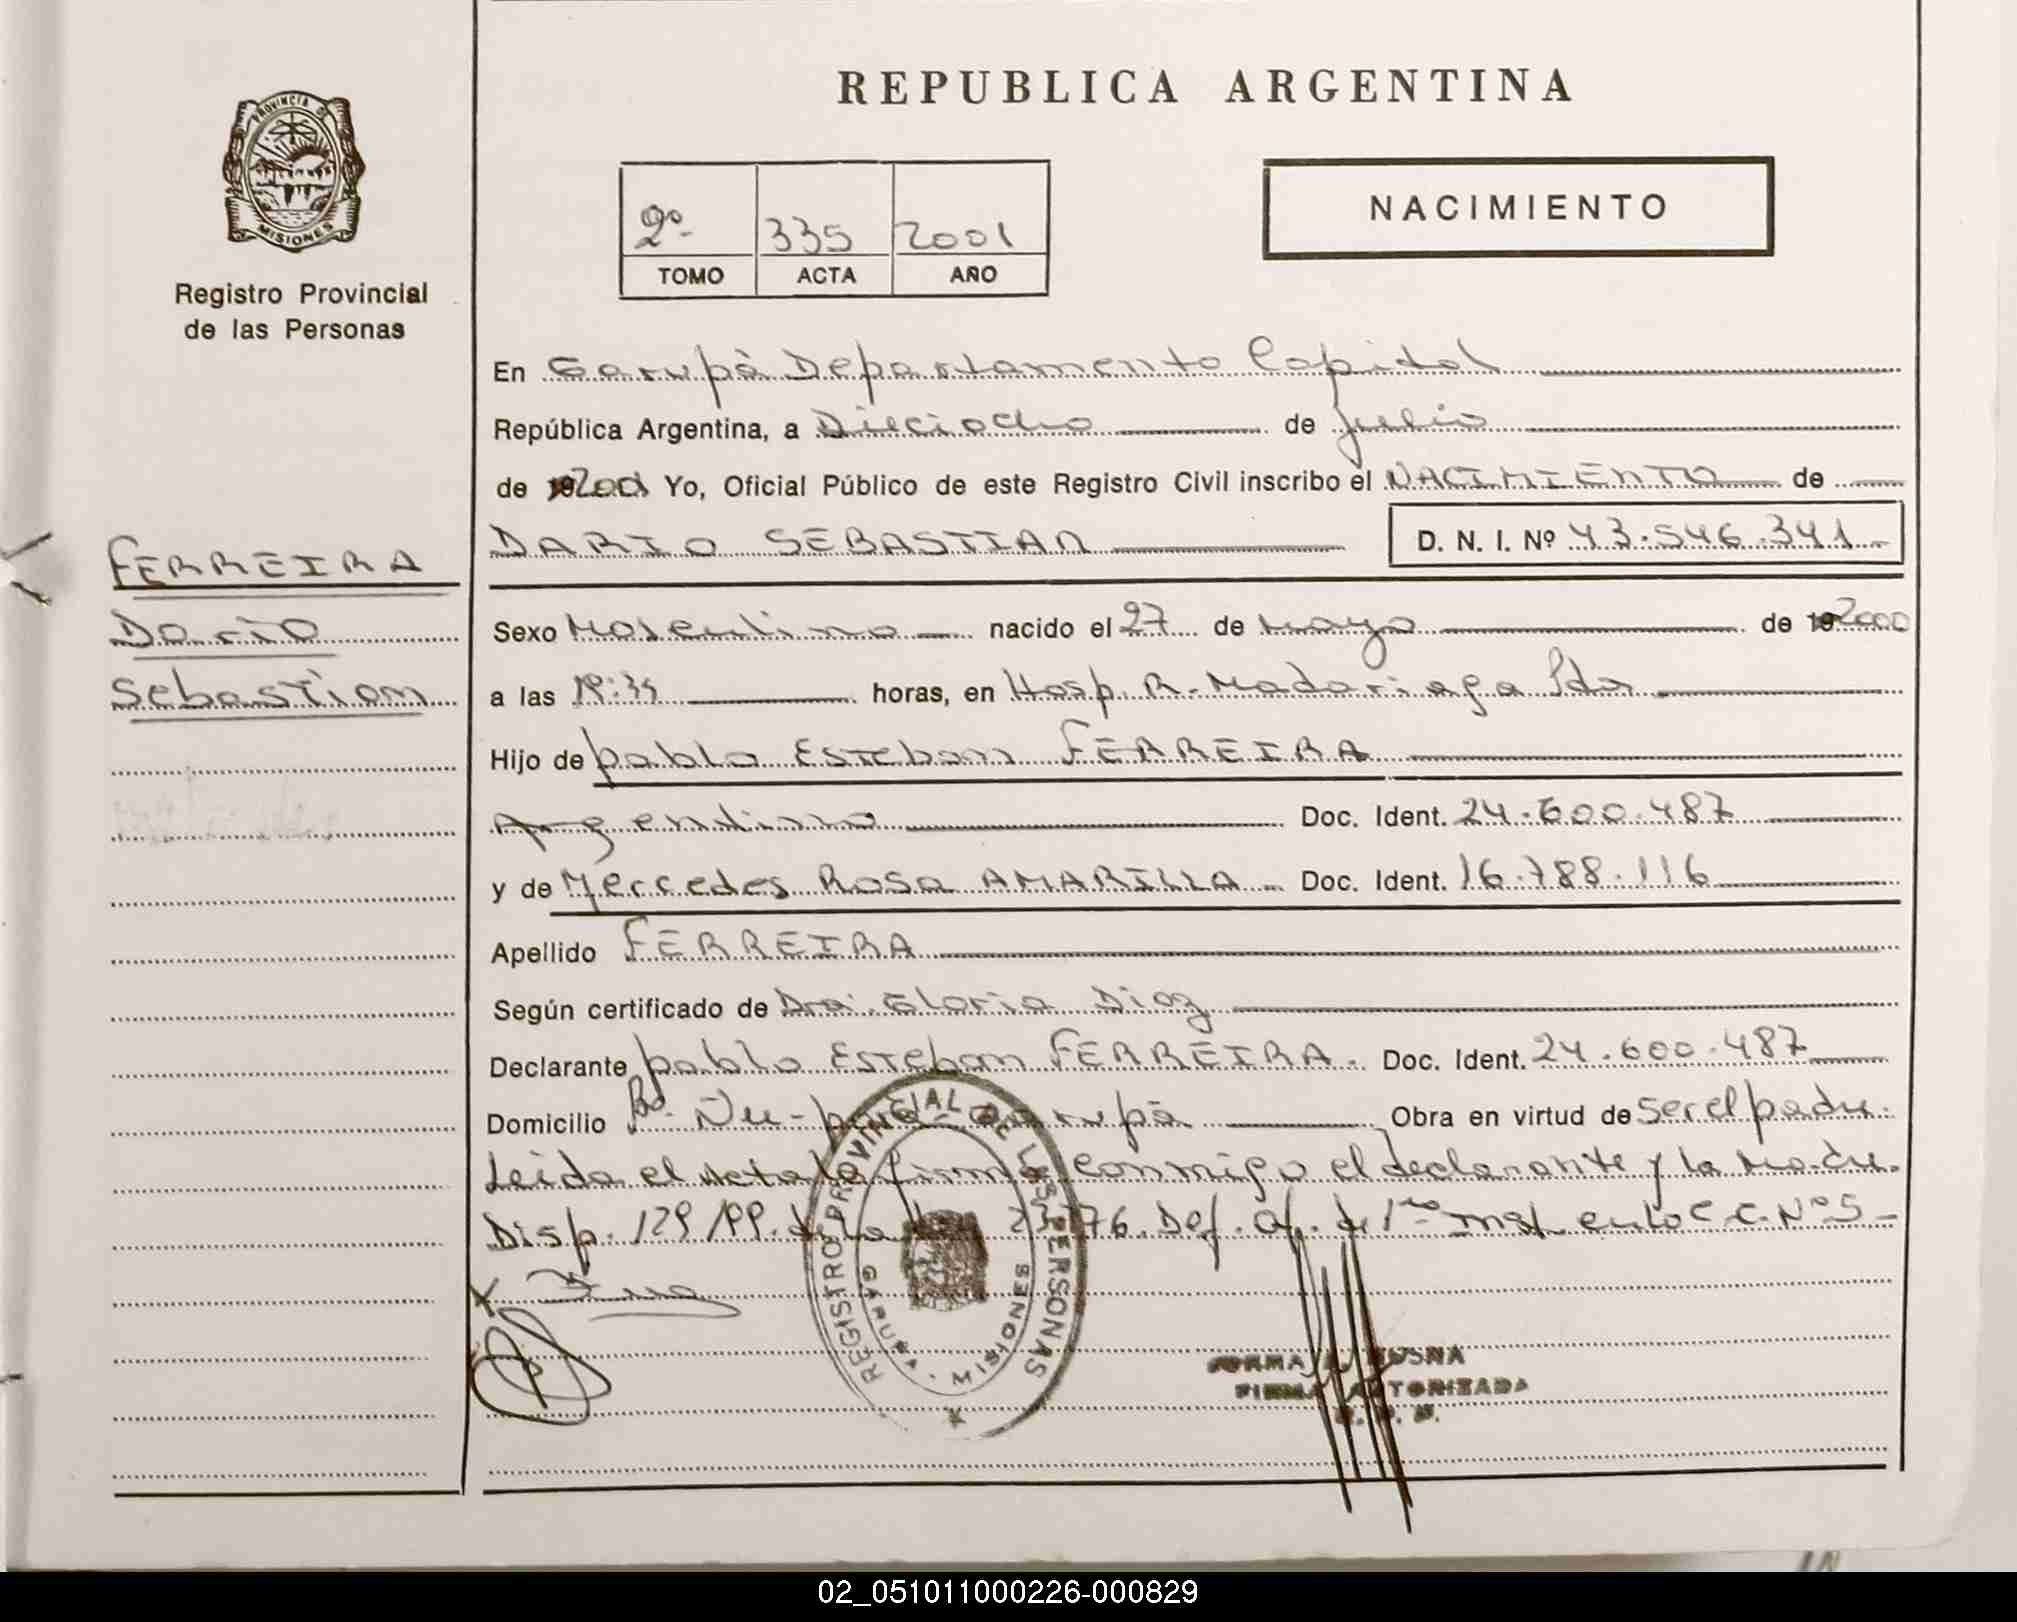 REPUBLICA ARGENTINA
PROVINCIA DE
MISIONES
Registro Provincial
de las Personas
2º 335 2001
TOMO ACTA AÑO
NACIMIENTO
En Garupà Departamento Capital
República Argentina, a Dieciocho de julio
de 2001 Yo, Oficial Público de este Registro Civil inscribo el NACIMIENTO de
DARIO SEBASTIAN D. N. I. Nº 43.546.341
FERREIRA
Dario
Sebastian
Sexo Masculino nacido el 27 de mayo de 2000
a las horas, en Hosp. R. Madariaga Pdas
Hijo de pablo Esteban FERREIRA
Argentino Doc. Ident. 24.600.487
y de Mercedes Rosa AMARILLA Doc. Ident. 16.788.116
Apellido FERREIRA
Según certificado de Dra. Gloria Diaz
Declarante pablo Esteban FERREIRA. Doc. Ident. 24.600.487
Domicilio Bº. Ñu-porá Garupà Obra en virtud de ser el padre.
Leida el acta la firma conmigo el declarante y la Madre.
Disp. 129/99. de la Def. Of. de 1ra Inst. en lo C. C. Nº 5
REGISTRO PROVINCIAL DE LAS PERSONAS
GARUPA - MISIONES
NORMA
FIRMA AUTORIZADA
02_051011000226-000829